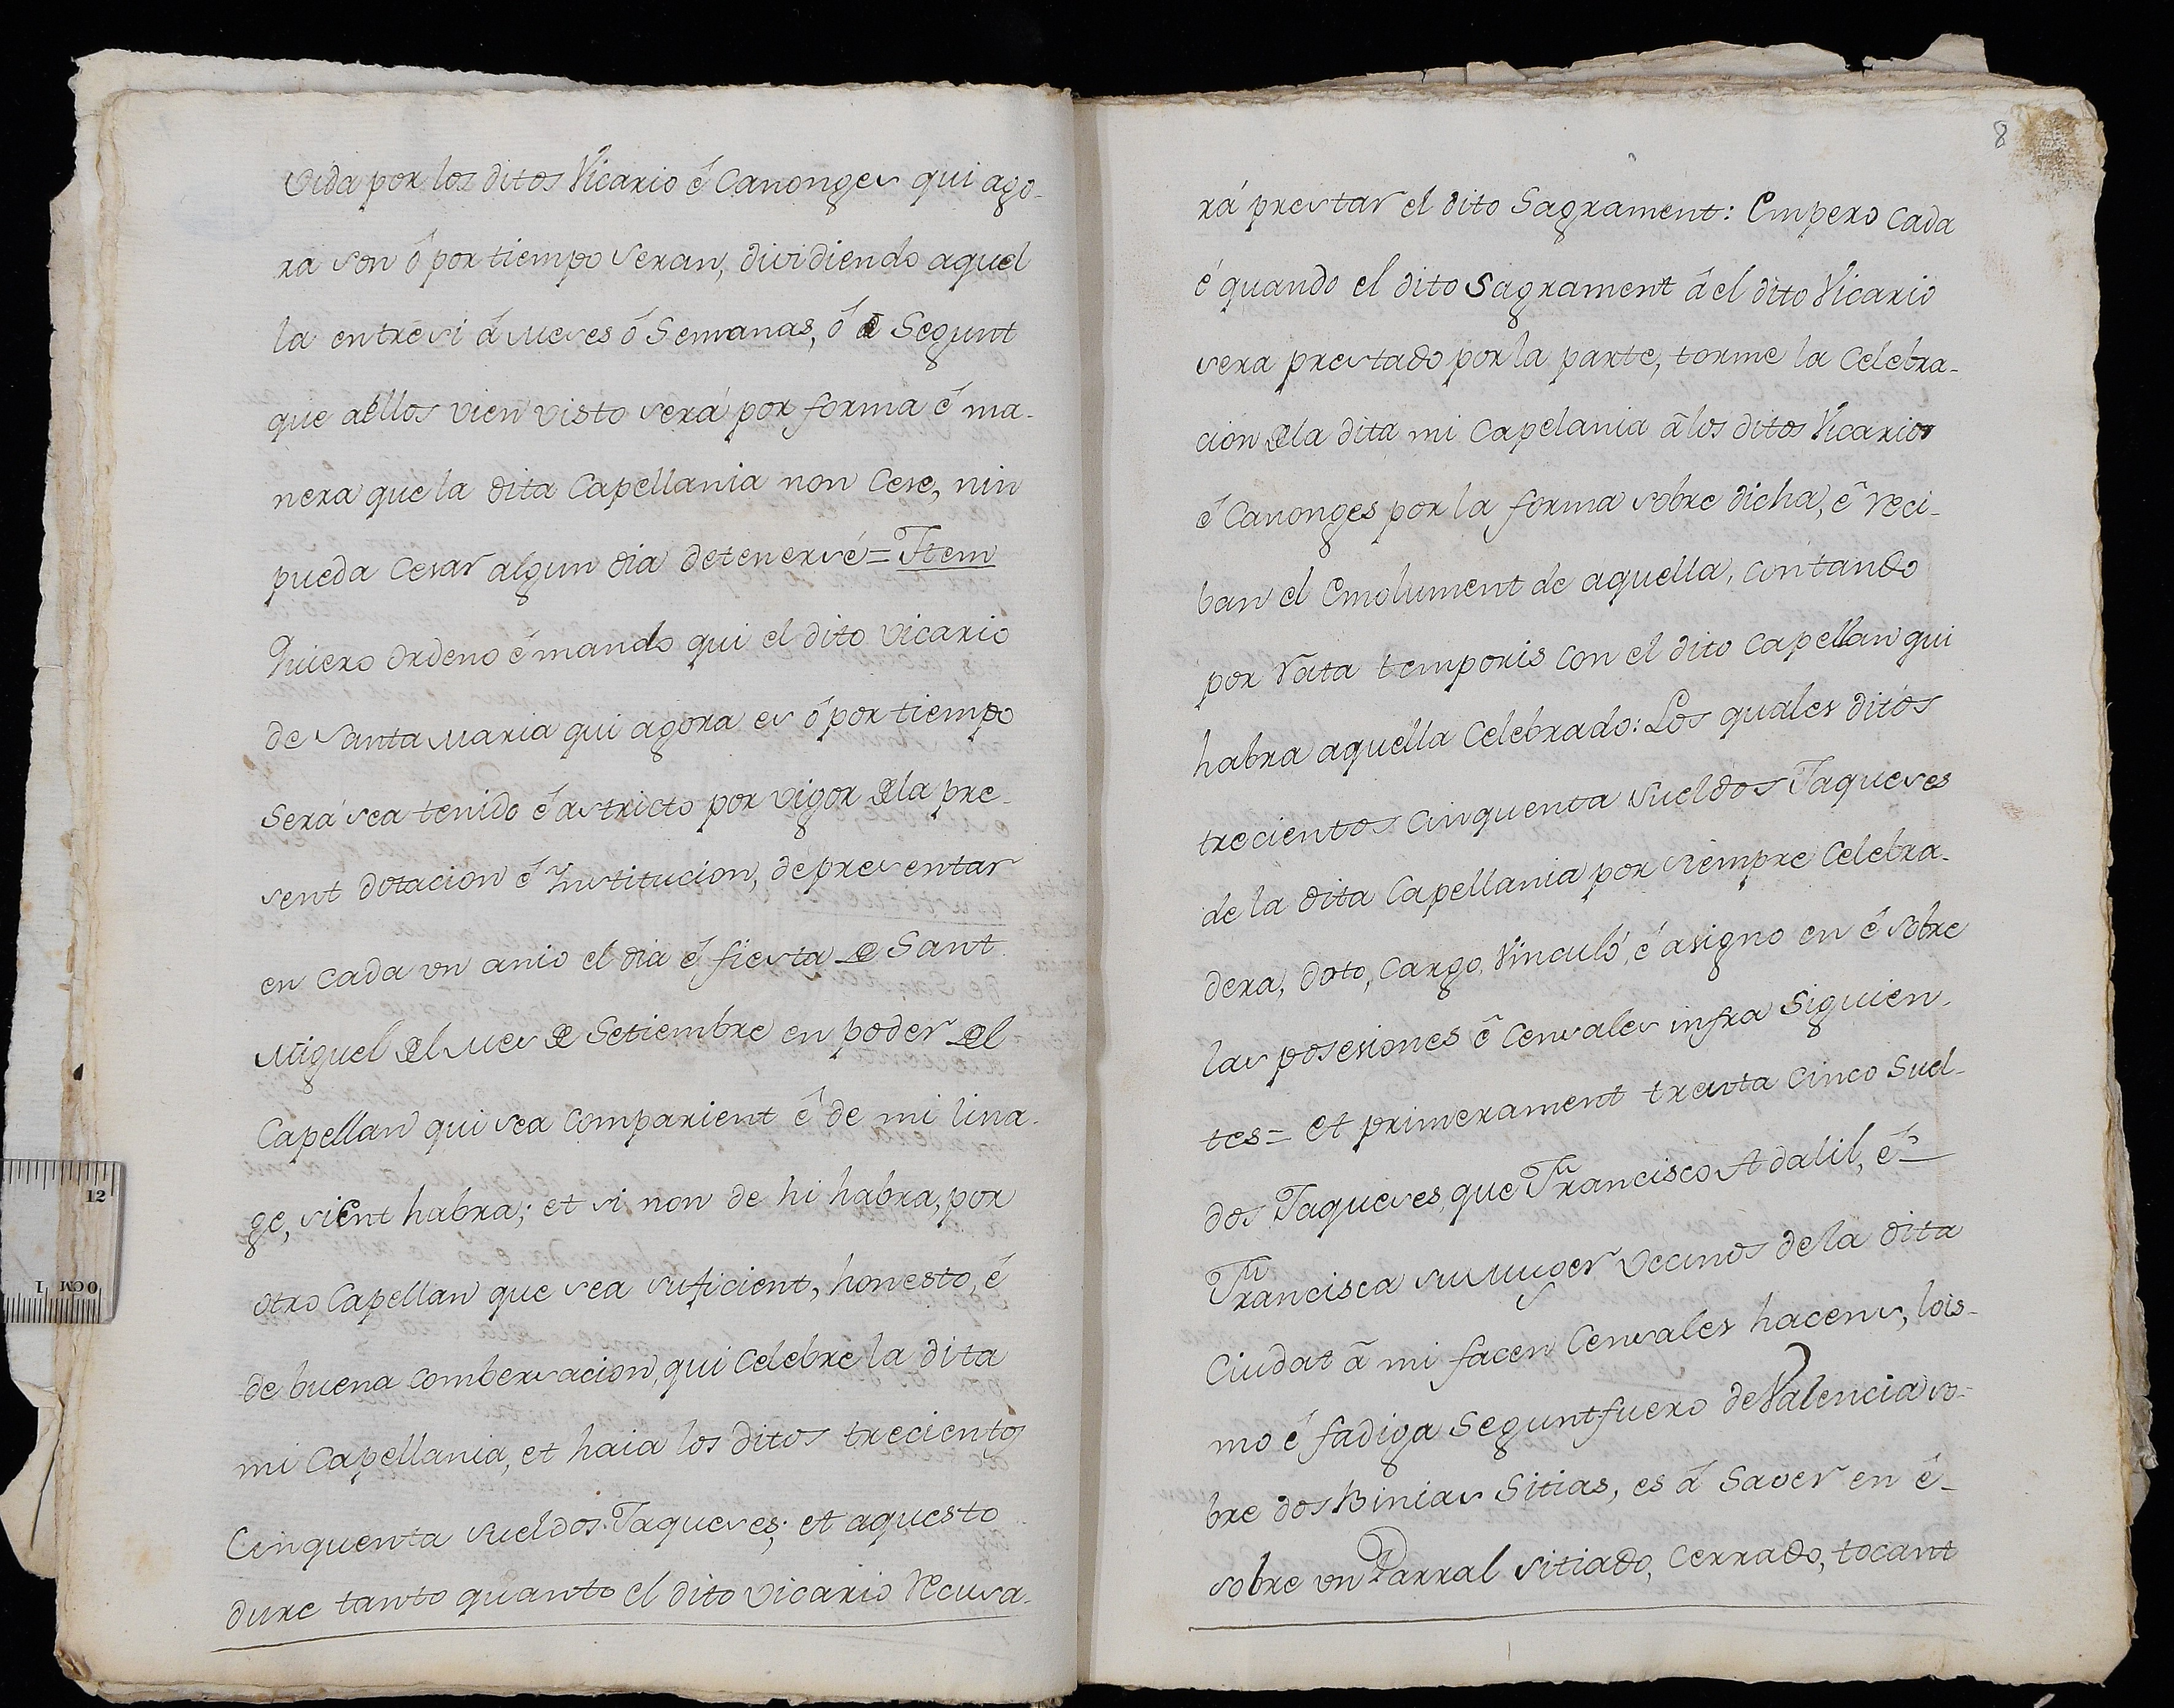 vida por los ditos Vicario é Canonges qui ago-
ra son ó por tiempo seran, dividiendo aquel
la entresi á meses ó Semanas, ó Segunt
que aéllos vien visto será por forma é ma-
nera que la dita Capellania non Cese, nin
pueda Cesar algun dia detenersé = Item
Quiero ordeno é mando qui el dito vicario
de santa maria qui agora es ó por tiempo
será sea tenido é astricto por vigor dela pre-
sent dotacion é Institucion, de presentar
en cada un anio el dia é fiesta de Sant
Miguel del mes de Setiembre en poder del
Capellan qui sea Comparient é de mi lina-
ge, sient habra; et si non de hi habra, por
otro Capellan que sea suficient, honesto, é
de buena combersacion, qui Celebre la dita
mi Capellania, et haia los ditos trecientos
Cinquenta sueldos Jaqueses; et aquesto
dure tanto quanto el dito vicario recusa-
8
rá prestar el dito Sagrament: Empero Cada
é quando el dito Sagrament á el dito Vicario
sera prestado por la parte, torme la Celebra-
cion dela dita mi Capelania á los ditos Vicarios
é Canonges por la forma sobre dicha, é reci-
ban el Emolument de aquella, contando
por rata temporis con el dito Capellan qui
habra aquella Celebrado: Los quales ditos
trecientos cinquenta sueldos Jaqueses
de la dita Capellania por siempre Celebra-
dera, doto, cargo, Vinculó, é asigno en é sobre
las posesiones é Censales infra Siguien-
tes = et primerament trenta cinco Suel-
dos Jaqueses, que Francisco Adalil, é
Francisca su muger vecinos de la dita
Ciudat á mi facen Censales hacens, lois-
mo é fadiga Segunt fuero de Valencia so-
bre dos Binias Sitias, es á Saver en é
sobre un Parral sitiado, Cerrado, tocant